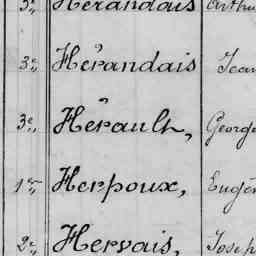 3e„ Hérandais Arthu
3e„ Hérandais Jean
3e„ Hérault, George
1er„ Herpoux, Eugèn
2e„ Hervais, Joseph